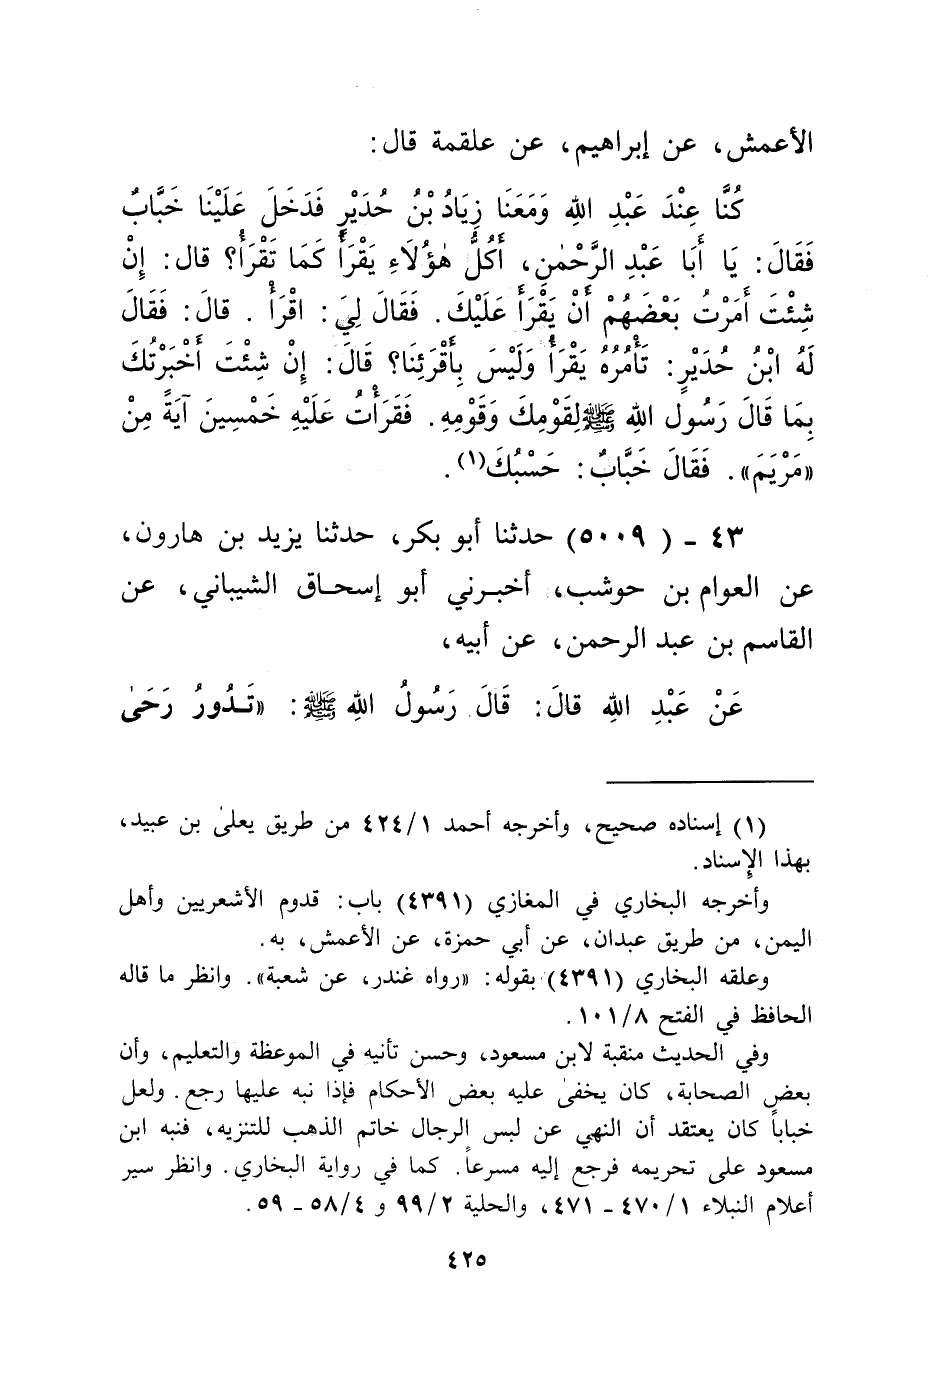 الأعمش، عن إبراهيم، عن علقمة قال:
كُنَّا عِنْدَ عَبْدِ اللهِ وَمَعَنَا زِيَادُ بْنُ حُدَيْرٍ فَدَخَلَ عَلَيْنَا خَبَّابٌ
فَقَالَ: يَا أَبَا عَبْدِ الرَّحْمٰنِ، أَكُلُّ هٰؤُلَاءِ يَقْرَأُ كَمَا تَقْرَأُ؟ قال: إِنْ
شِئْتَ أَمَرْتُ بَعْضَهُمْ أَنْ يَقْرَأَ عَلَيْكَ. فَقَالَ لِيَ: اقْرَأْ . قالَ: فَقَالَ
لَهُ ابْنُ حُدَيْرٍ: تَأْمُرُهُ يَقْرَأُ وَلَيْسَ بِأَقْرَئِنَا؟ قَالَ: إِنْ شِئْتَ أَخْبَرْتُكَ
بِمَا قَالَ رَسُول اللهِ ﷺ لِقَوْمِكَ وَقَوْمِهِ. فَقَرَأْتُ عَلَيْهِ خَمْسِينَ آيَةً مِنْ
«مَرْيَمَ». فَقَالَ خَبَّابٌ: حَسْبُكَ(١).
٤٣ - ( ٥٠٠٩) حدثنا أبو بكر، حدثنا يزيد بن هارون،
عن العوام بن حوشب، أخبرني أبو إسحاق الشيباني، عن
القاسم بن عبد الرحمن، عن أبيه،
عَنْ عَبْدِ اللهِ قالَ: قَالَ رَسُولُ اللهِ ﷺ: «تَدُورُ رَحَىٰ
(١) إسناده صحيح، وأخرجه أحمد ٤٢٤/١ من طريق يعلىٰ بن عبيد،
بهذا الإسناد.
وأخرجه البخاري في المغازي (٤٣٩١) باب: قدوم الأشعريين وأهل
اليمن، من طريق عبدان، عن أبي حمزة، عن الأعمش، به.
وعلقه البخاري (٤٣٩١) بقوله: «رواه غندر، عن شعبة». وانظر ما قاله
الحافظ في الفتح ١٠١/٨.
وفي الحديث منقبة لابن مسعود، وحسن تأنيه في الموعظة والتعليم، وأن
بعض الصحابة، كان يخفىٰ عليه بعض الأحكام فإذا نبه عليها رجع. ولعل
خباباً كان يعتقد أن النهي عن لبس الرجال خاتم الذهب للتنزيه، فنبه ابن
مسعود على تحريمه فرجع إليه مسرعاً. كما في رواية البخاري. وانظر سير
أعلام النبلاء ٤٧٠/١ - ٤٧١، والحلية ٩٩/٢ و ٥٨/٤ - ٥٩.
٤٢٥